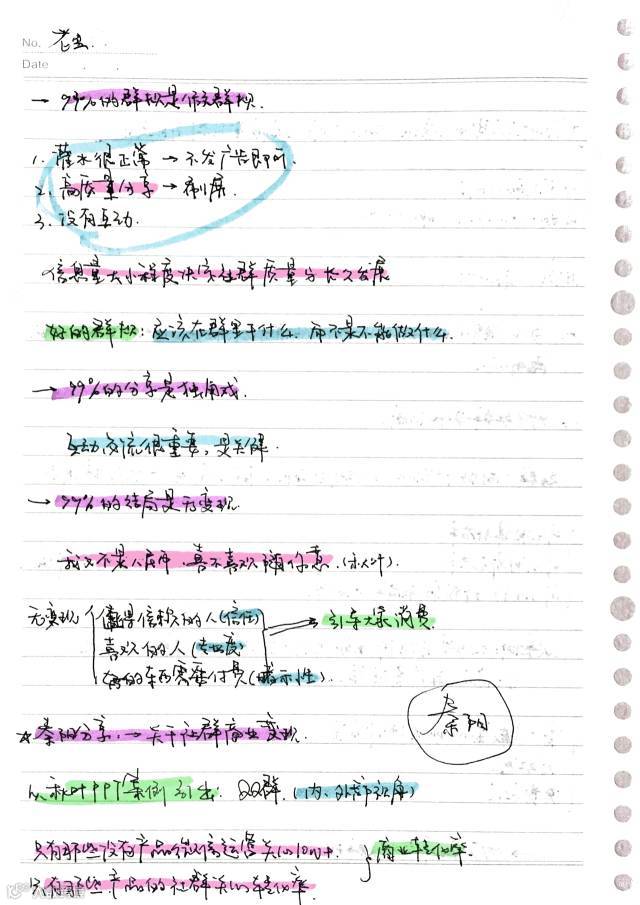 No. 老金.
Date
→ 99%的群规是作废群规.
1. 灌水很正常 → 不发广告即可.
2. 高质量分享 → 刷屏.
3. 没有互动.
信息量大小程度决定社群质量与长久发展
好的群规: 应该在群里干什么. 而不是不能做什么.
→ 99%的分享是独角戏.
互动交流很重要, 是关键.
→ 99%的结局是无变现.
我又不是人民币, 喜不喜欢随你意. (秋叶).
无变现 { 值得信赖的人 (信任)
喜欢的人 (专业度) → 引导大家消费.
的东西需要付费 (暗示性).
秦阳
☆ 秦阳分享, → 关于让群商业变现.
1、秋叶PPT案例引出: QQ群. (内、外部
只有那些没有产品的微信运营关心10W+. } 商业转化率.
只有 产品的社群关心转化率.